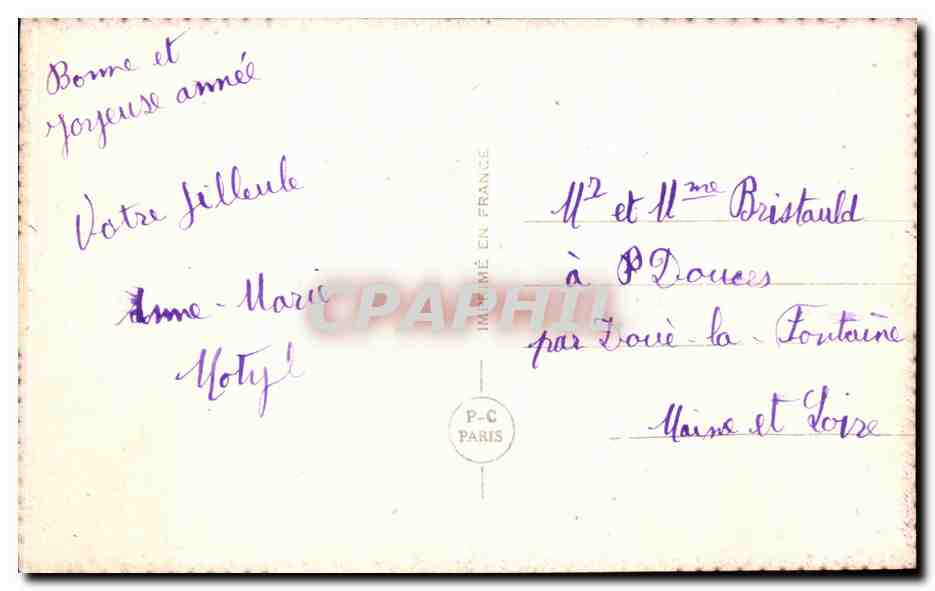 Bonne et
Joyeuse année
Votre filleule
Anne-Marie
Motyl
IMPRIMÉ EN FRANCE
P-C
PARIS
CPAPHIL
Mr et Mme Bristauld
à Douces
par Doué-la-Fontaine
Maine et Loire